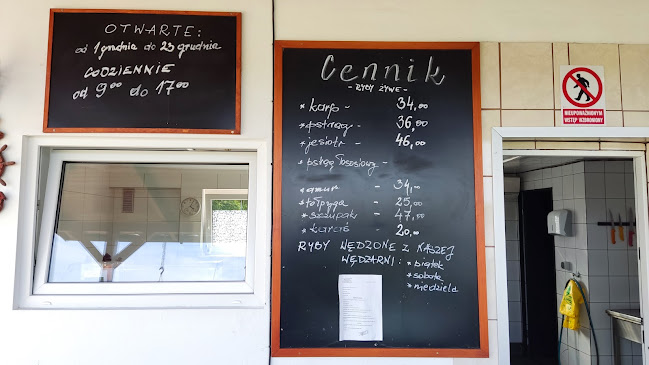 OTWARTE:
od 1 grudnia do 23 grudnia
CODZIENNIE
od 9⁰⁰ do 17⁰⁰
Cennik
- RYBY ŻYWE -
* karp - 34,00
* pstrąg - 36,00
* jesiotr - 46,00
* pstrąg łososiowy -
* amur - 34,00
* tołpyga - 25,00
* szczupak - 47,00
* karaś - 20,00
RYBY WĘDZONE Z NASZEJ
WĘDZARNI: * piątek
* sobota
* niedziela
NIEUPOWAŻNIONYM
WSTĘP WZBRONIONY